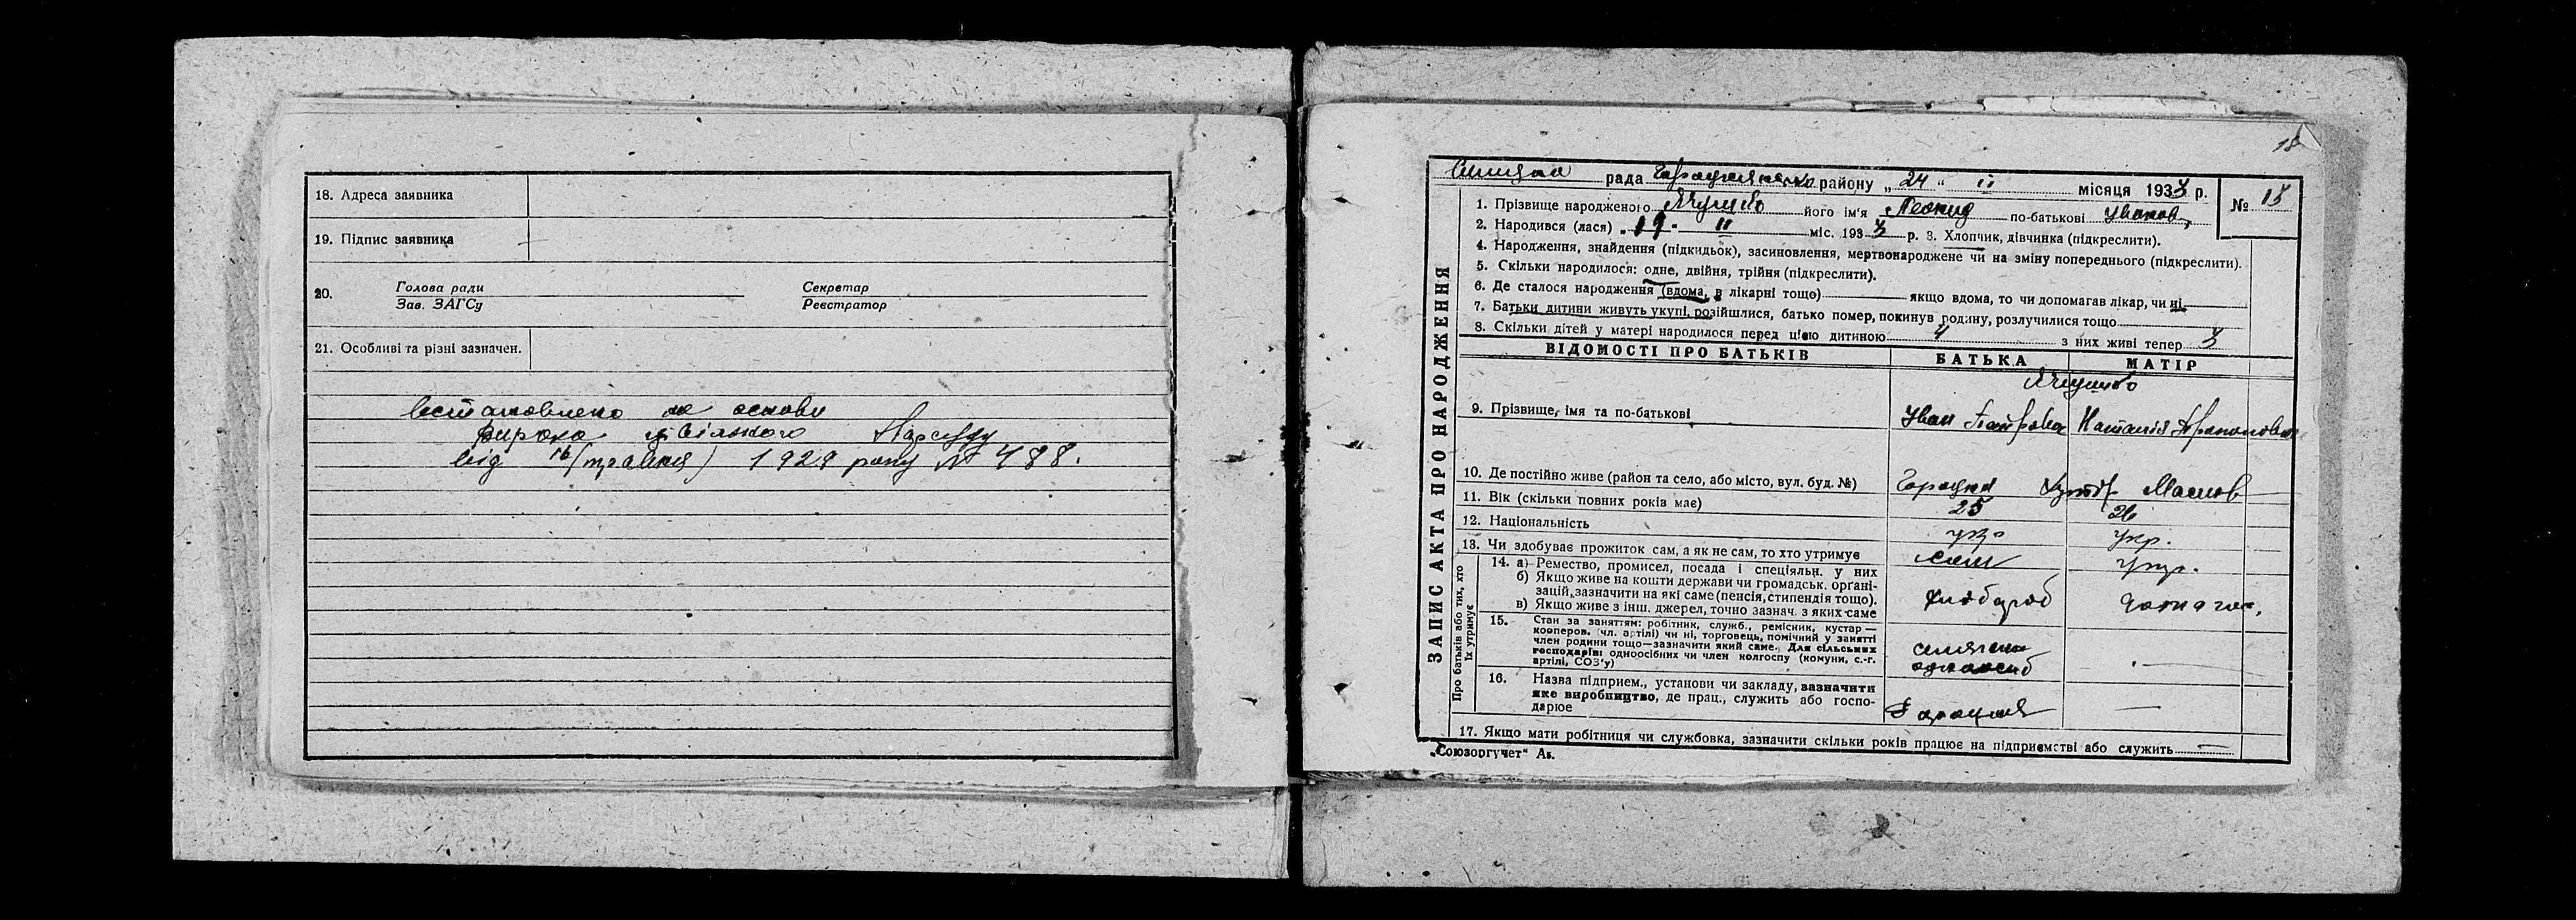 18. Адреса заявника
19. Підпис заявника
20. Голова ради Секретар
Зав. ЗАГСу Реєстратор
21. Особливі та різні зазначен.
на основи
Нарсуду
від 16 (травня) 1929 року № 488.
18
рада району „24“ II місяця 1933 р.
№ 18
1. Прізвище народженого його ім'я Леонид по-батькові Иванов,
2. Народився (лася) „19“ II міс. 1933 р. 3. Хлопчик, дівчинка (підкреслити).
4. Народження, знайдення (підкидьок), засиновлення, мертвонароджене чи на зміну попереднього (підкреслити).
5. Скільки народилося: одне, двійня, трійня (підкреслити).
6. Де сталося народження (вдома, в лікарні тощо) якщо вдома, то чи допомагав лікар, чи ні
7. Батьки дитини живуть укупі, розійшлися, батько помер, покинув родину, розлучилися тощо
8. Скільки дітей у матері народилося перед цією дитиною 4 з них живі тепер 3
ЗАПИС АКТА ПРО НАРОДЖЕННЯ
ВІДОМОСТІ ПРО БАТЬКІВ БАТЬКА МАТІР
9. Прізвище, імя та по-батькові Иван Наталія
10. Де постійно живе (район та село, або місто, вул. буд. №) Хутор Маслов
11. Вік (скільки повних років має) 25 26
12. Національність укр. укр.
13. Чи здобуває прожиток сам, а як не сам, то хто утримує сам
Про батьків або тих, хто їх утримує
14. а) Ремество, промисел, посада і спеціяльн. у них
б) Якщо живе на кошти держави чи громадськ. органі-
зацій, зазначити на які саме (пенсія, стипендія тощо).
в) Якщо живе з інш. джерел, точно зазнач. з яких саме
хлібороб домагос.
15. Стан за заняттям: робітник, служб., ремісник, кустар —
кооперов. (чл. артілі) чи ні, торговець, помічний у занятті
член родини тощо—зазначити який саме. Для сільських
господарів: одноосібних чи член колгоспу (комуни, с.-г.
артілі, СОЗ'у)
селянин
одноосіб
16. Назва підприєм., установи чи закладу, зазначити
яке виробництво, де прац., служить або госпо-
дарює
17. Якщо мати робітниця чи службовка, зазначити скільки років працює на підприємстві або служить —
„Союзоргучет“ Ав.